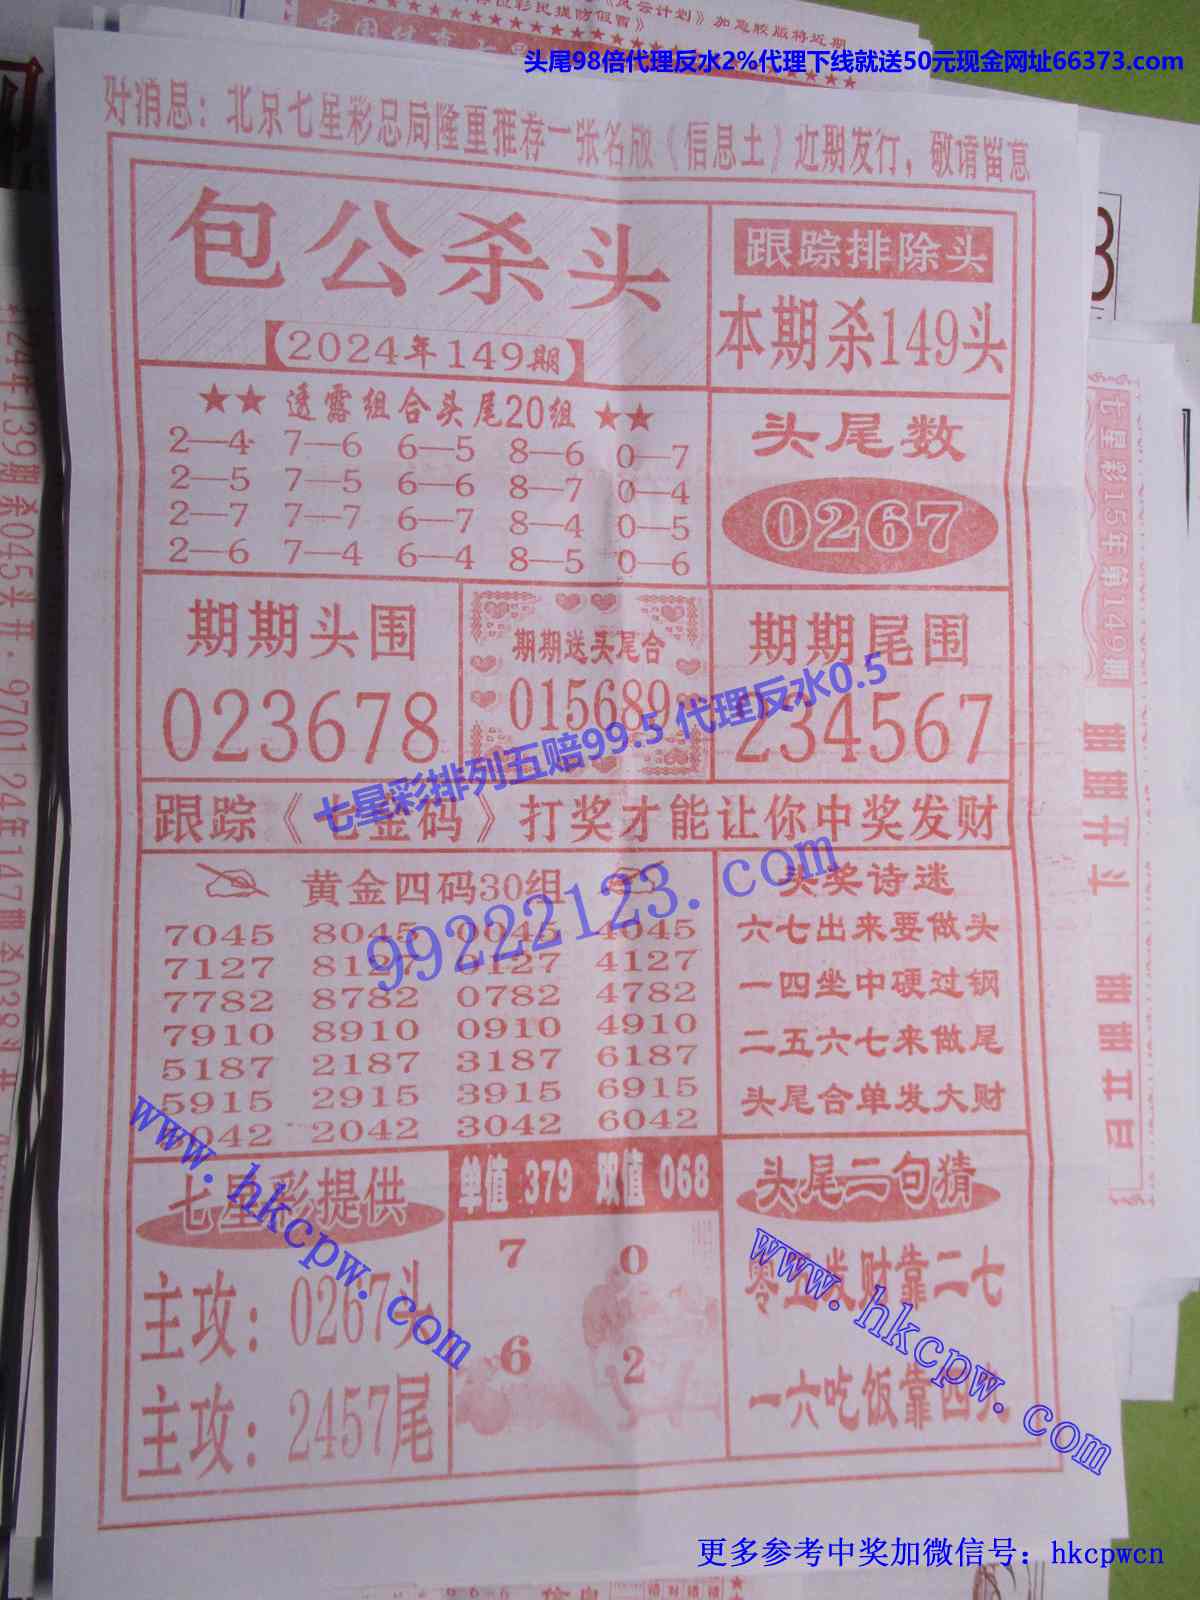 位彩民提防假冒》
《风云计划》加急胶版将近期
头尾98倍代理反水2%代理下线就送50元现金网址66373.com
好消息：北京七星彩总局隆重推荐一张名版《信息土》近期发行，敬请留意
包公杀头
【2024年149期】
跟踪排除头
本期杀149头
★★ 透露组合头尾20组 ★★
2—4 7—6 6—5 8—6 0—7
2—5 7—5 6—6 8—7 0—4
2—7 7—7 6—7 8—4 0—5
2—6 7—4 6—4 8—5 0—6
头尾数
0267
期期头围
023678
期期送头尾合
015689
期期尾围
234567
七星彩排列五赔99.5 代理反水0.5
跟踪《七金码》打奖才能让你中奖发财
黄金四码30组
7045 8045 0045 4045
7127 8127 0127 4127
7782 8782 0782 4782
7910 8910 0910 4910
5187 2187 3187 6187
5915 2915 3915 6915
042 2042 3042 6042
99222123.com
头奖诗迷
六七出来要做头
一四坐中硬过钢
二五六七来做尾
头尾合单发大财
七星彩提供
主攻：0267头
主攻：2457尾
单值 379 双值 068
7 0
6 2
头尾二句猜
零五发财靠二七
一六吃饭靠四
www.hkcpw.com
www.hkcpw.com
七星彩15年第149期
24年139期杀045头开·9701
更多参考中奖加微信号：hkcpwcn